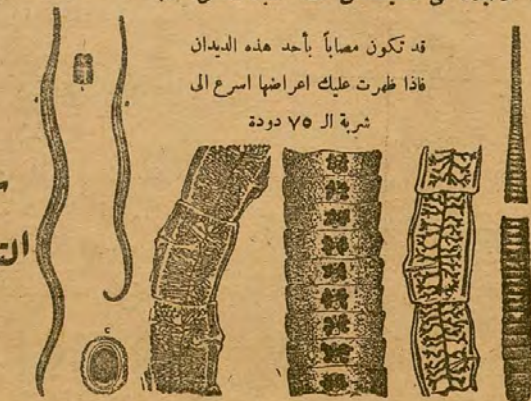 قد تكون مصاباً بأحد هذه الديدان
فاذا ظهرت عليك اعراضها اسرع الى
شربة الـ ٧٥ دودة